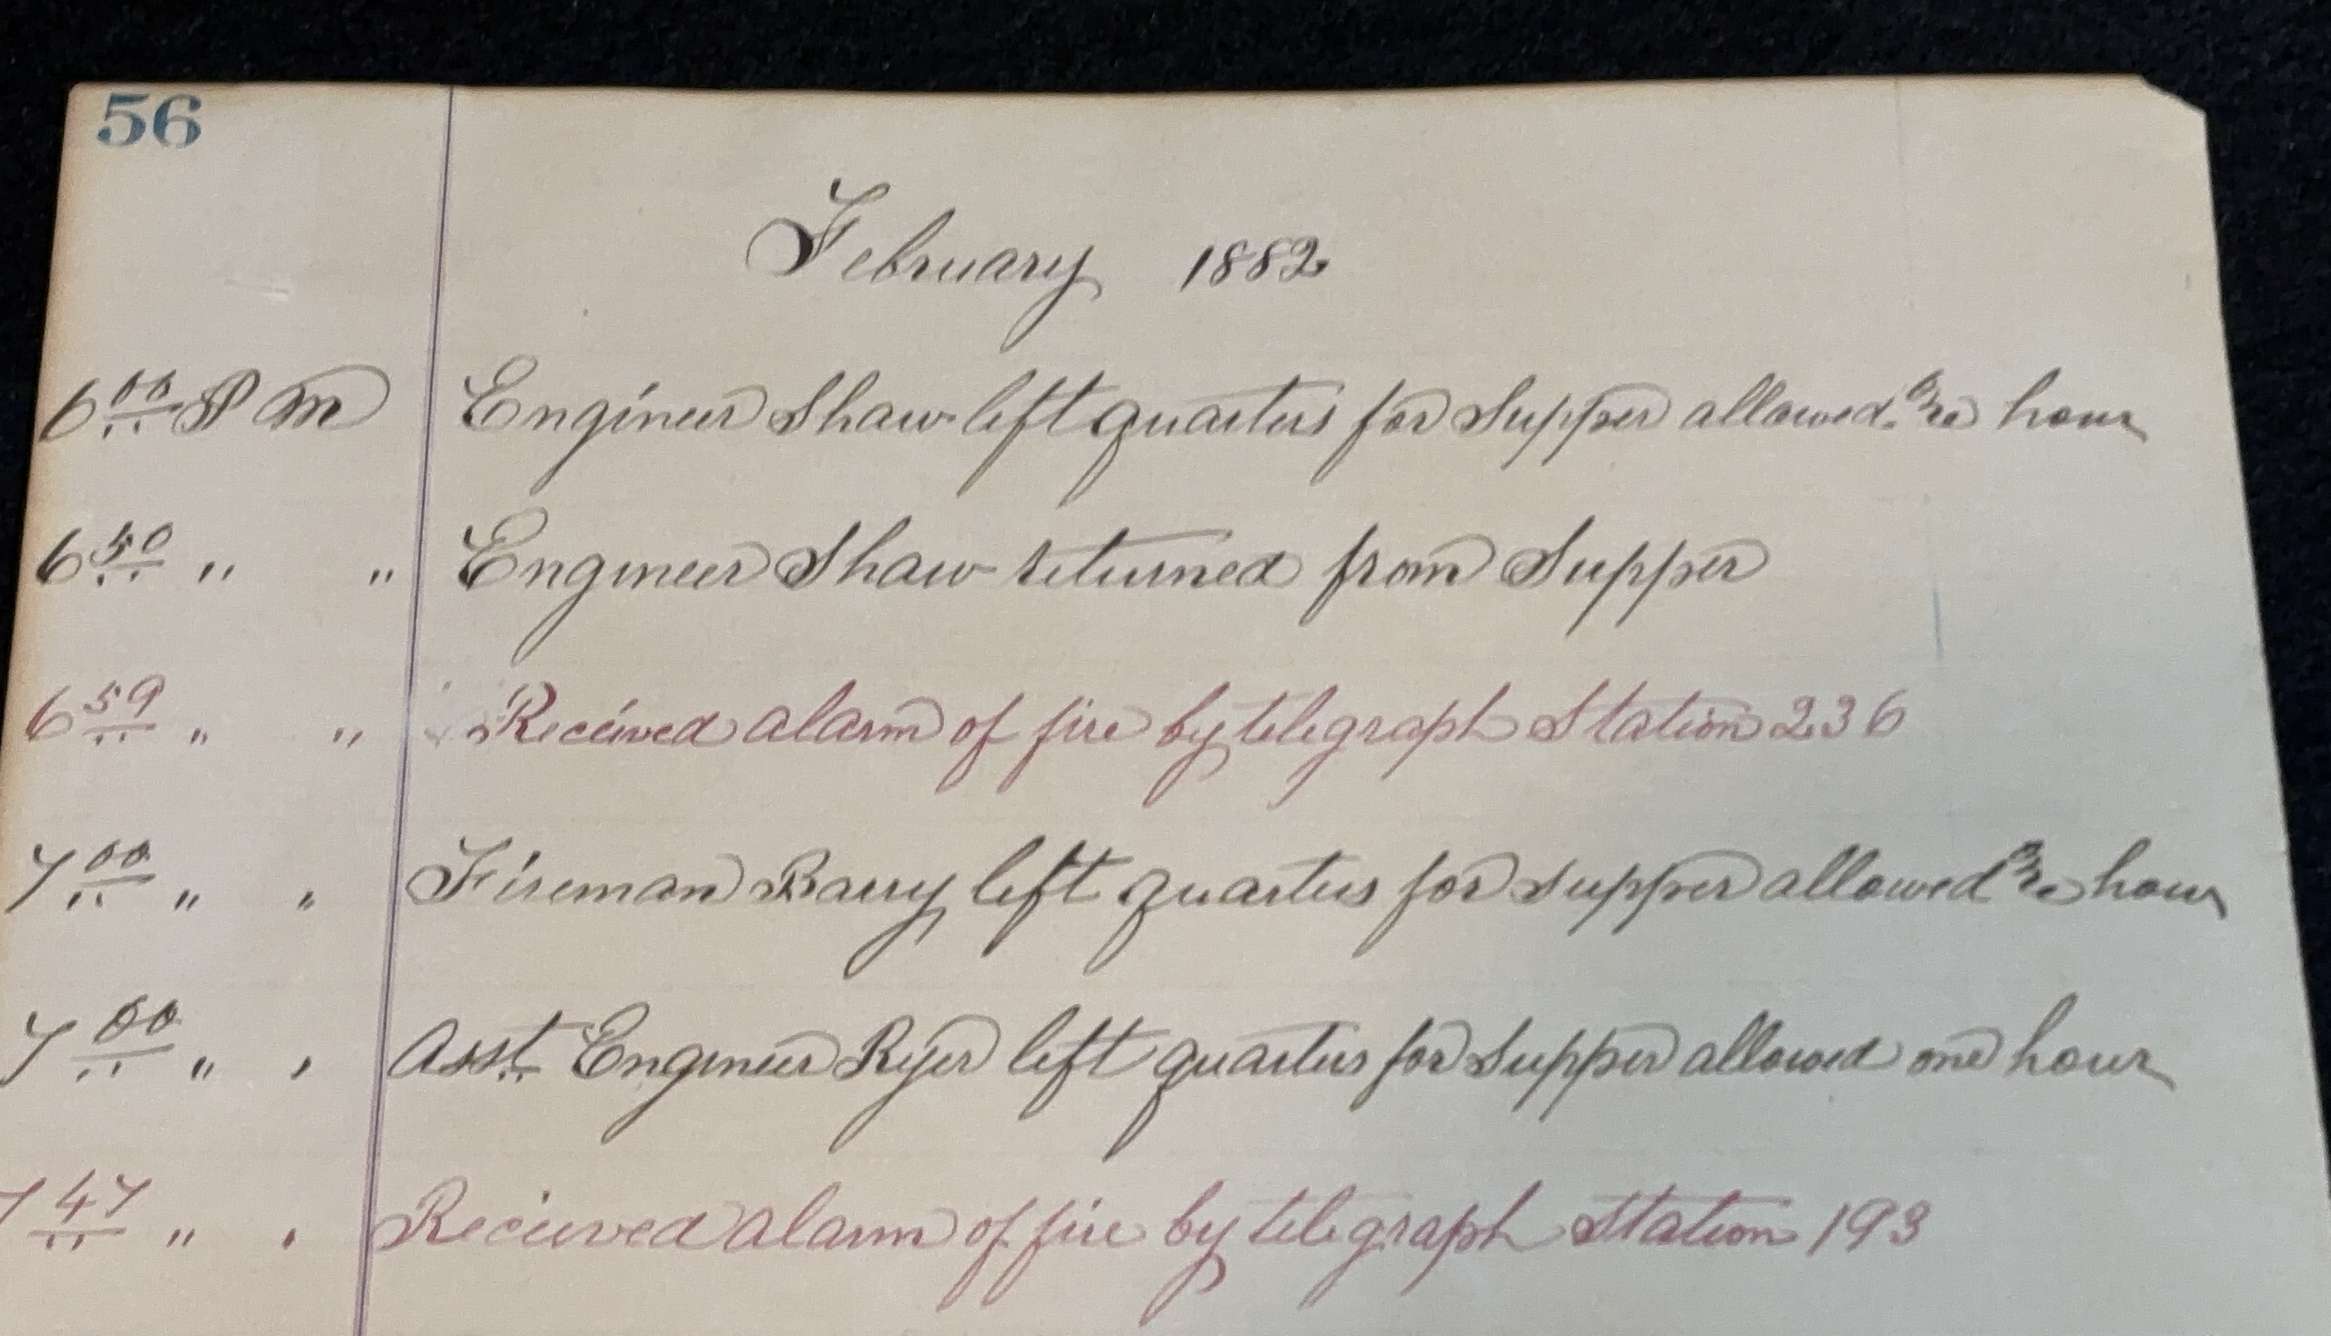 56
February 1882
6 00 P M Engineer Shaw left quarters for Supper allowed one hour
6 50 " " Engineer Shaw returned from Supper
6 59 " " Received alarm of fire by telegraph Station 236
7 00 " " Fireman Barry left quarters for supper allowed one hour
7 00 " " Asst Engineer Ryer left quarters for Supper allowed one hour
7 47 " " Received alarm of fire by telegraph Station 193